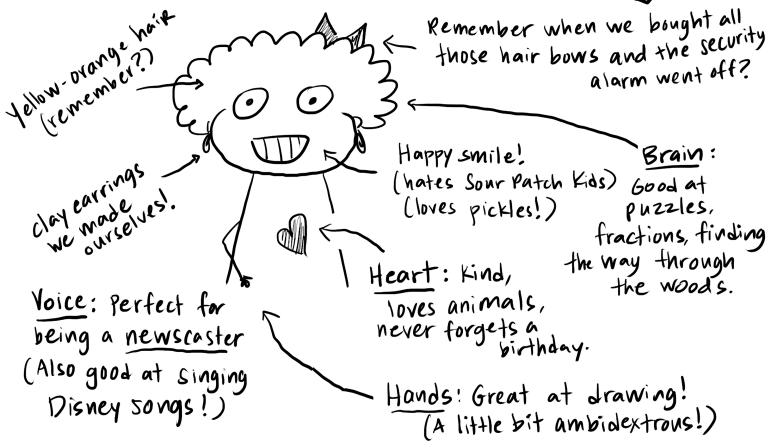 Yellow-orange hair
(remember?)
Remember when we bought all
those hair bows and the security
alarm went off?
clay earrings
we made
ourselves!
Happy smile!
(hates Sour Patch Kids)
(loves pickles!)
Brain:
Good at
puzzles,
fractions, finding
the way through
the woods.
Heart: Kind,
loves animals,
never forgets a
birthday.
Voice: Perfect for
being a newscaster
(Also good at singing
Disney songs!)
Hands: Great at drawing!
(A little bit ambidextrous!)